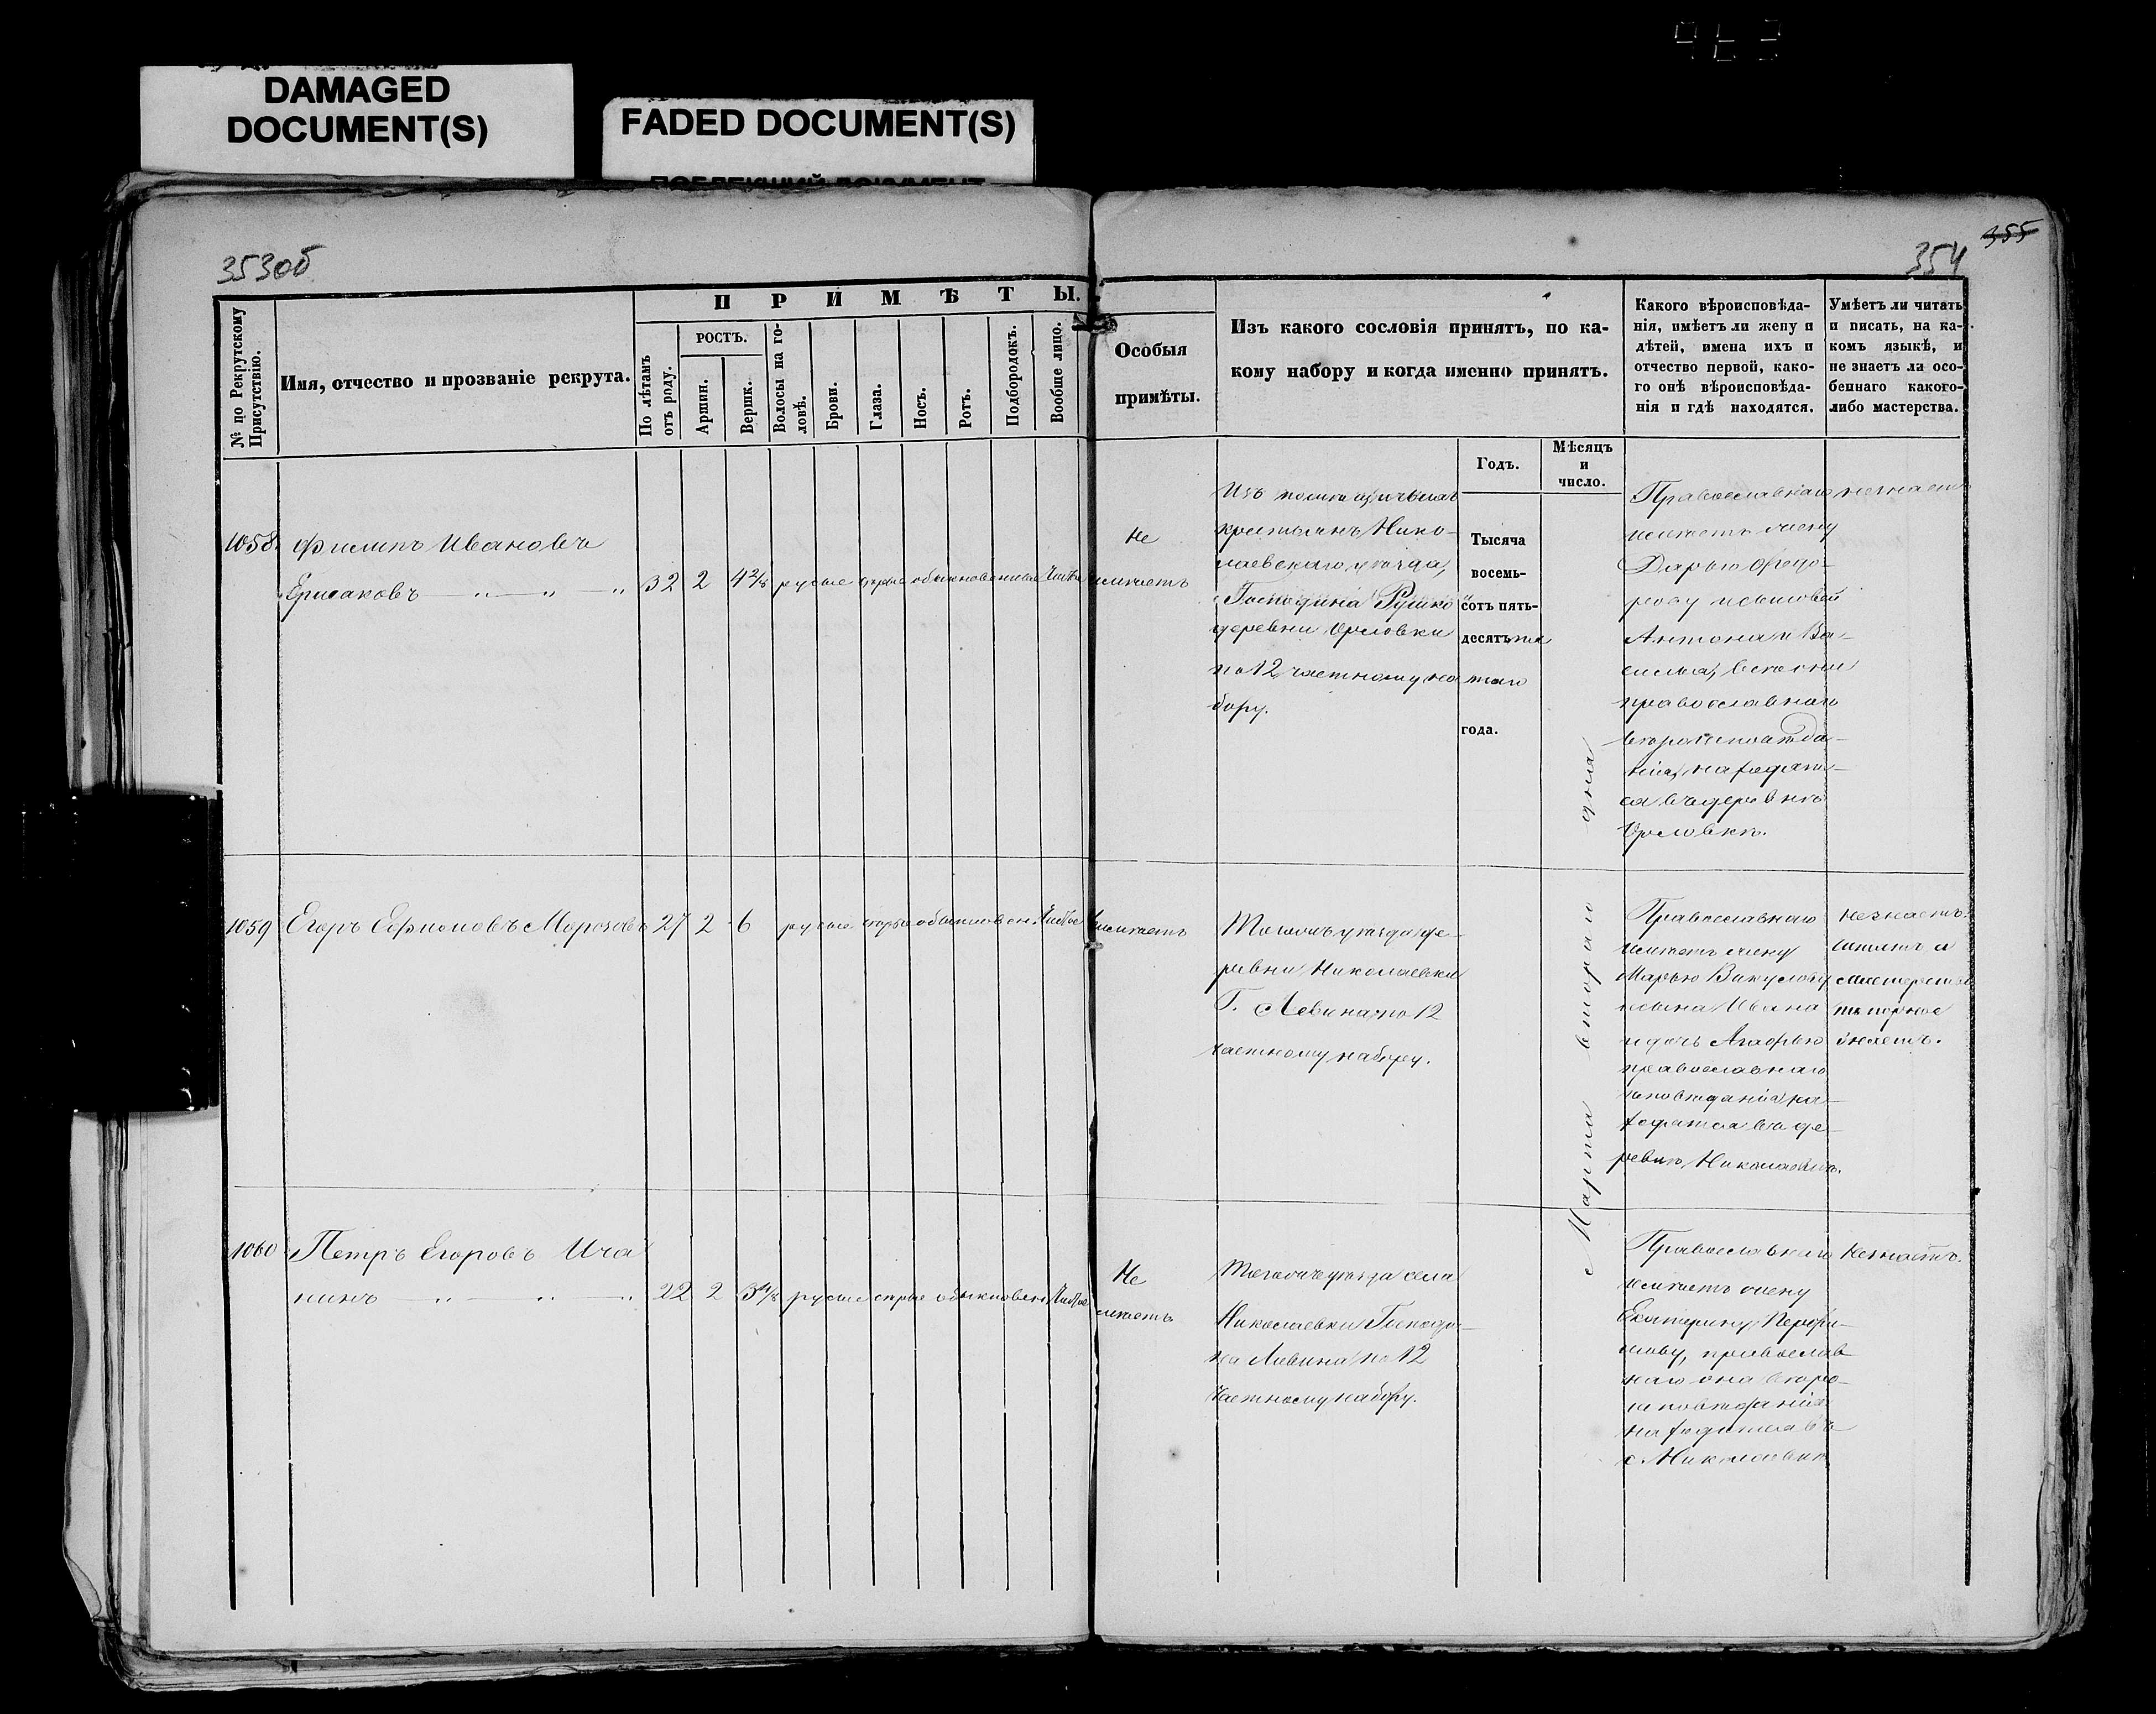 DAMAGED
DOCUMENT(S)
FADED DOCUMENT(S)
353об
354
355
№ по Рекрутскому Присутствію.
Имя, отчество и прозваніе рекрута.
ПРИМѢТЫ.
По лѣтамъ отъ роду.
РОСТЪ.
Аршин.
Вершк.
Волосы на головѣ.
Брови.
Глаза.
Носъ.
Ротъ.
Подбородокъ.
Вообще лицо.
Особыя
примѣты.
Изъ какого сословія принятъ, по ка-
кому набору и когда именно принятъ.
Годъ.
Мѣсяцъ
и
число.
Какого вѣроисповѣда-
нія, имѣетъ ли жену и
дѣтей, имена ихъ и
отчество первой, како-
го онѣ вѣроисповѣда-
нія и гдѣ находятся.
Умѣетъ ли читать
и писать, на ка-
комъ языкѣ, и
не знаетъ ли осо-
беннаго какого-
либо мастерства.
1058
Филипъ Ивановъ
Ермаковъ
32 2 4 2/8 русые сѣрые обыкновенные Чистое
Не
имѣетъ
Изъ помѣщичьихъ
крестьянъ Нико-
лаевскаго уѣзда,
Господина
деревни Орловки
по 12 частному на
бору.
Тысяча
восемь-
сотъ пять-
десятъ пя
таго
года.
Марта втораго дня
Православнаго
имѣетъ жену
Дарью Федо-
рову и сыновей
Антона и Ва-
силья, всѣ они
православнаго
вѣроисповѣда-
нія, находят-
ся въ деревнѣ
Орловкѣ.
незнаетъ
1059
Егоръ Ефимовъ Морозовъ 27 2 6 русые сѣрые обыкновен. Чистое
имѣетъ
Того жъ уѣзда де-
ревни Николаевки
Г. Левина по 12
частному набору.
Православнаго
имѣетъ жену
Марью Викулову
и сына Ивана
и дочь Агафью
православнаго
исповѣданія на-
ходятся въ де-
ревнѣ Николаевкѣ.
незнаетъ.
мастерство
знаетъ.
1060
Петръ Егоровъ Ича
нинъ
22 2 3 4/8 русые сѣрые обыкновен. Чистое
Не
имѣетъ
Того жъ уѣзда села
Николаевки Господи-
на Левина по 12
частному набору.
Православнаго
имѣетъ жену
Екатерину Перфи-
лову, православ
наго она вѣро-
исповѣданія
находится въ
с. Николаевкѣ
незнаетъ.